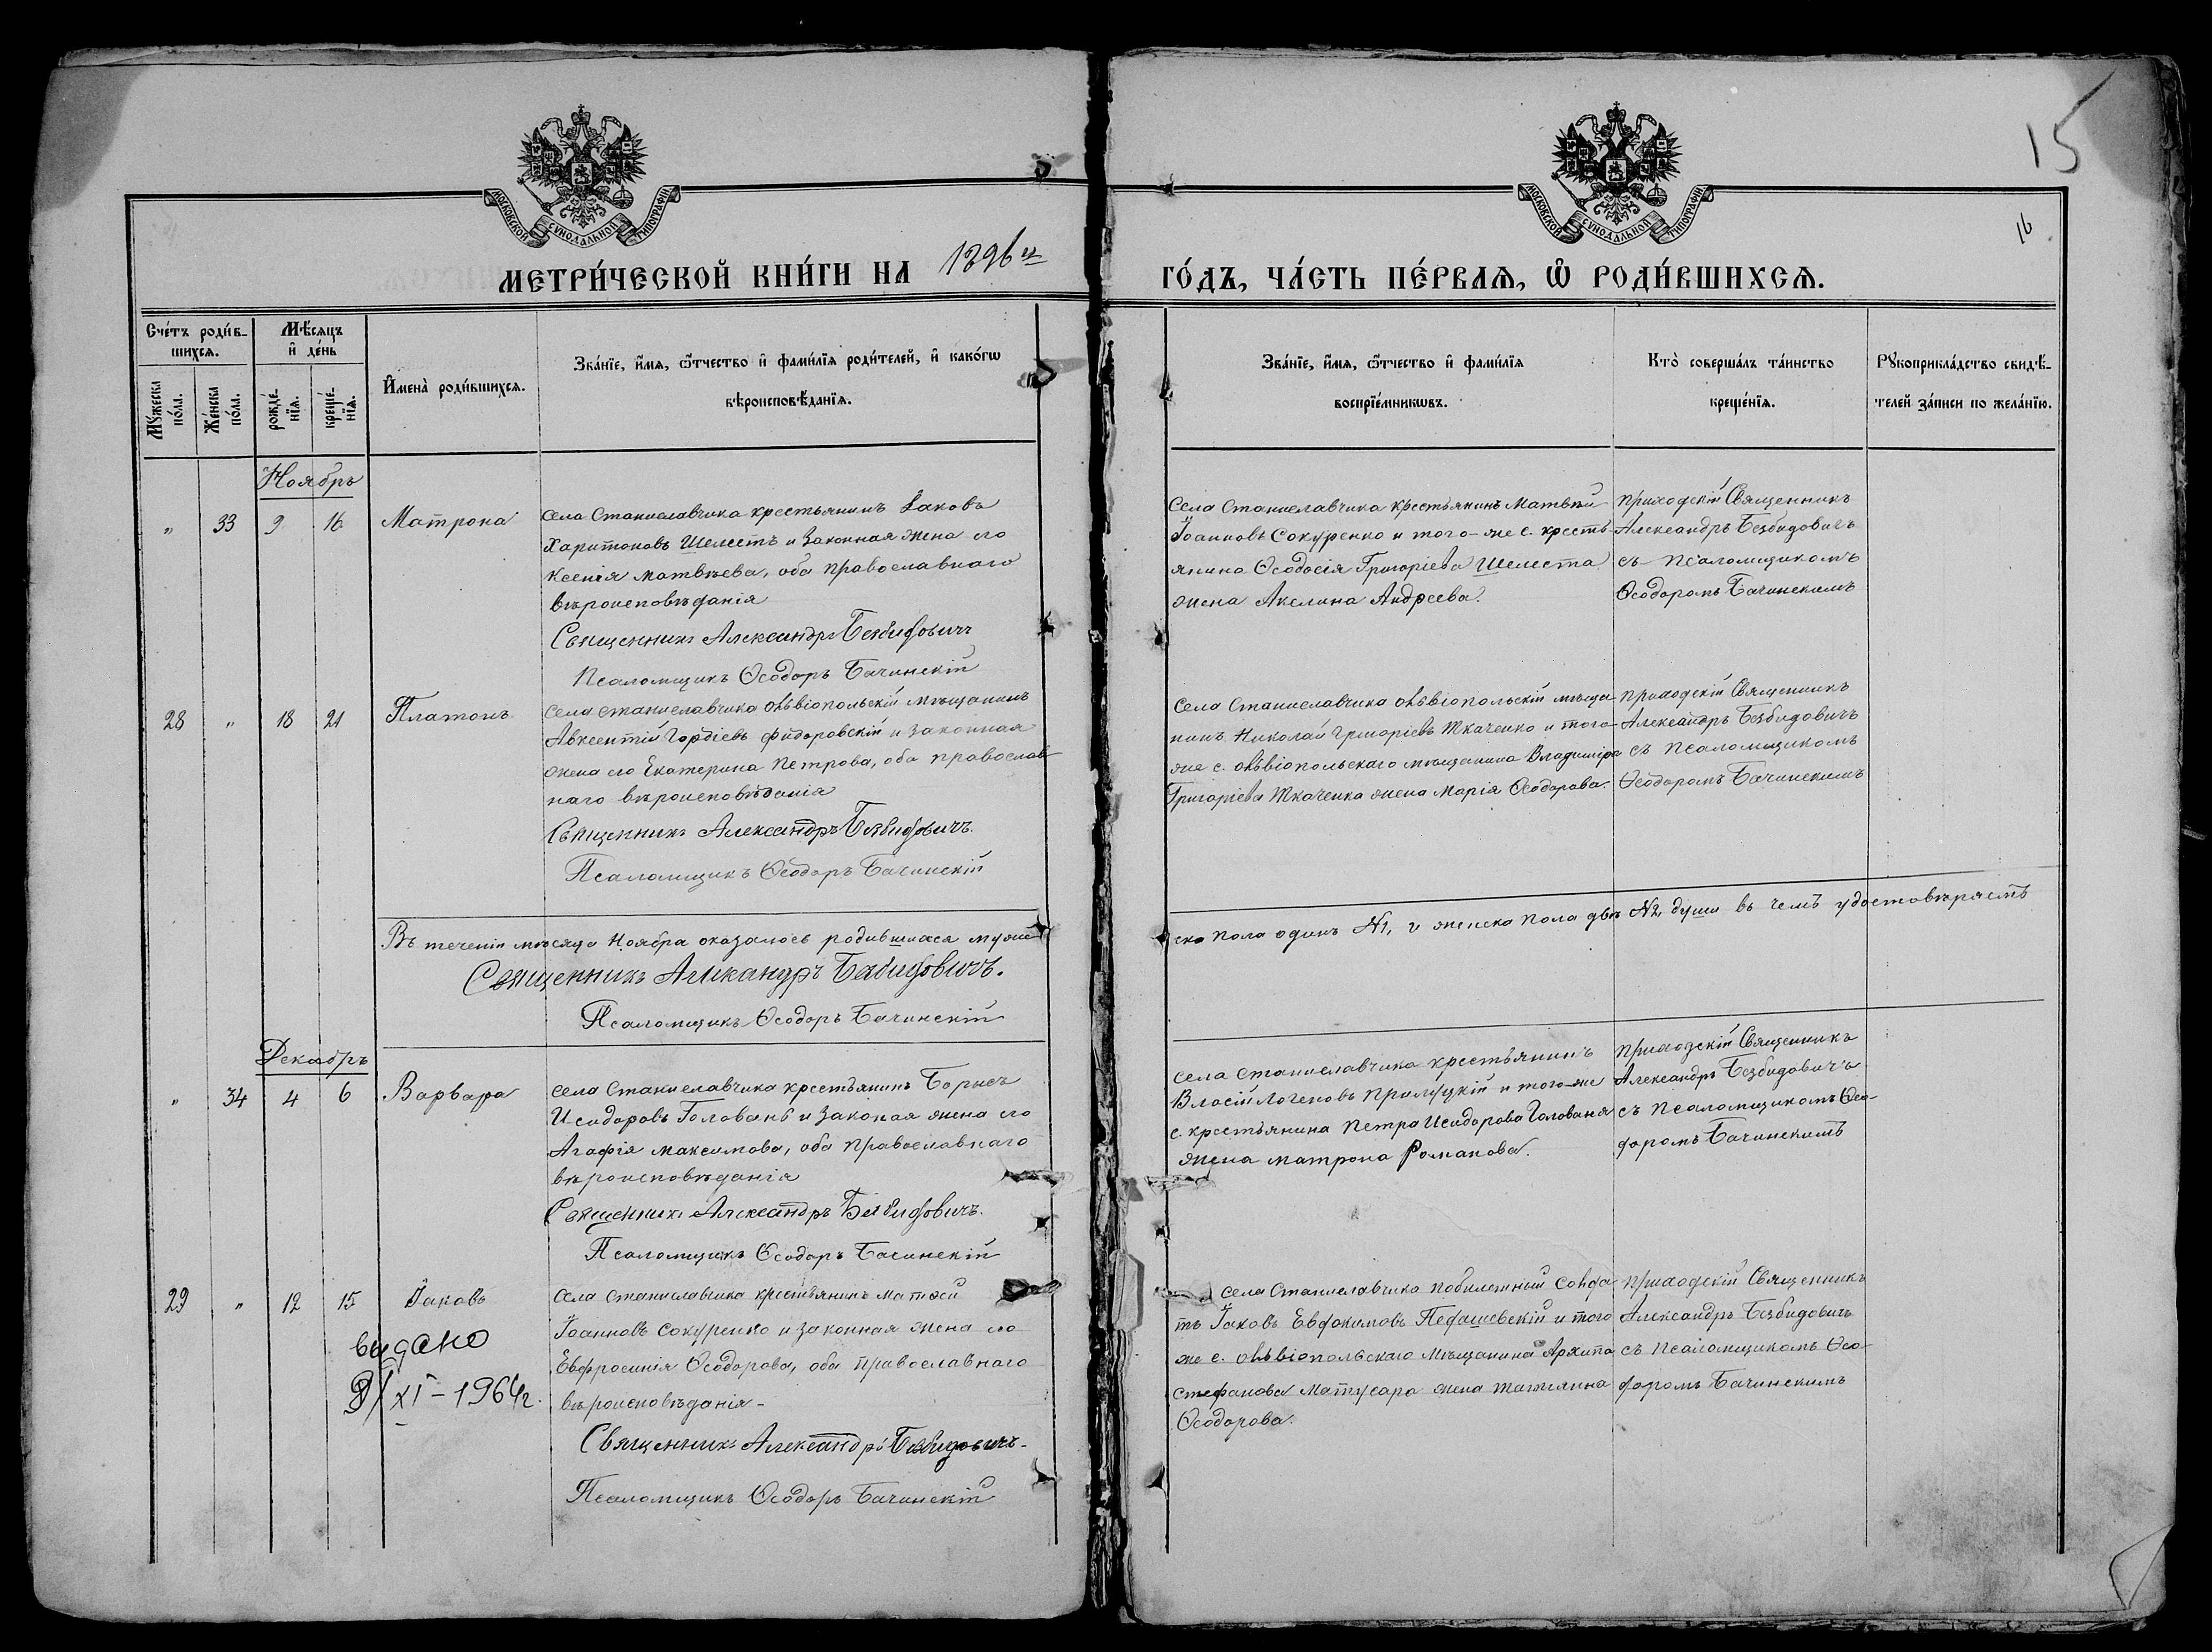 15
16
МОСКОВСКОЙ СѴНОДАЛЬНОЙ ТИПОГРАФІИ
МОСКОВСКОЙ СѴНОДАЛЬНОЙ ТИПОГРАФІИ
МЕТРИ́ЧЕСКОЙ КНИ́ГИ НА 1896й
ГО́ДЪ, ЧА́СТЬ ПЕ́РВАѦ, Ѽ РОДИ́ВШИХСѦ.
Сче́тъ роди́в-
шихсѧ.
Мѣ́сѧцъ
и҆ де́нь
Мꙋ́жеска
по́ла.
Же́нска
по́ла.
рожде́-
нїѧ.
креще́-
нїѧ.
И҆мена̀ роди́вшихсѧ.
Зва́нїе, и҆́мѧ, ѻ҆́тчество и҆ фами́лїѧ роди́телей, и҆ како́гѡ
вѣроисповѣ́данїѧ.
Зва́нїе, и҆́мѧ, ѻ҆́тчество и҆ фами́лїѧ
воспрїе́мникѡвъ.
Кто̀ соверша́лъ та́инство
креще́нїѧ.
Рꙋкоприкла́дство свидѣ́-
телей за́писи по жела́нїю.
Ноябрь
" 33 9 16 Матрона
Села Станиславчика крестьянинъ Іаковъ
Харитоновъ Шелестъ и законная жена его
Ксенія Матвѣева, оба православнаго
вѣроисповѣданія
Священникъ Александръ Безвидовичъ
Псаломщикъ Ѳеодоръ Бачинскій
Села Станиславчика крестьянинъ Матвѣй
Іоанновъ Сокуренко и того-же с. кресть-
янина Ѳеодосія Григоріева Шелеста
жена Акелина Андреева.
Приходскій Священникъ
Александръ Безвидовичъ
съ Псаломщикомъ
Ѳеодоромъ Бачинскимъ
28 " 18 21 Платонъ
Села Станиславчика ольвіопольскій мѣщанинъ
Авксентій Гордіевъ Фидоровскій и законная
жена его Екатерина Петрова, оба православ-
наго вѣроисповѣданія
Священникъ Александръ Безвидовичъ.
Псаломщикъ Ѳеодоръ Бачинскій
Села Станиславчика ольвіопольскій мѣща-
нинъ Николай Григоріевъ Ткаченко и того-
же с. ольвіопольскаго мѣщанина Владиміра
Григоріева Ткаченка жена Марія Ѳеодорова.
Приходскій Священникъ
Александръ Безвидовичъ
съ Псаломщикомъ
Ѳеодоромъ Бачинскимъ
Въ теченіи мѣсяца Ноября оказалось родившихся муже-
ска пола одинъ №1, и женска пола двѣ №2, души въ чемъ удостовѣряетъ
Священникъ Александръ Безвидовичъ.
Псаломщикъ Ѳеодоръ Бачинскій
Декабрь
" 34 4 6 Варвара
Села Станиславчика крестьянинъ Борисъ
Исидоровъ Головань и законая жена его
Агафія Максимова, оба православнаго
вѣроисповѣданія
Священникъ Александръ Безвидовичъ.
Псаломщикъ Ѳеодоръ Бачинскій
Села Станиславчика крестьянинъ
Власій Логеновъ Прилуцкій и того-же
с. крестьянина Петра Исидорова Голованя
жена Матрона Романова.
Приходскій Священникъ
Александръ Безвидовичъ
съ Псаломщикомъ Ѳео-
доромъ Бачинскимъ
29 " 12 15 Іаковъ
видано
9/XI-1964г.
Села Станиславчика крестьянинъ Матѳей
Іоанновъ Сокуренко и законная жена его
Евфросинія Ѳеодорова, оба православнаго
вѣроисповѣданія-
Священникъ Александръ Безвидовичъ.
Псаломщикъ Ѳеодоръ Бачинскій
Села Станиславчика побилетный солда-
тъ Іаковъ Евдокимовъ Педашевскій и того
же с. ольвіопольскаго мѣщанина Архипа
Стефанова Матусара жена Татіянна
Ѳеодорова.
Приходскій Священникъ
Александръ Безвидовичъ
съ Псаломщикомъ Ѳео-
доромъ Бачинскимъ